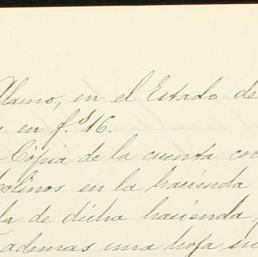 Alamo, en el Estado de
en f.s 16.
Cópia de la cuenta con
Molinos en la hacienda
de dicha hacienda
ademas una hoja